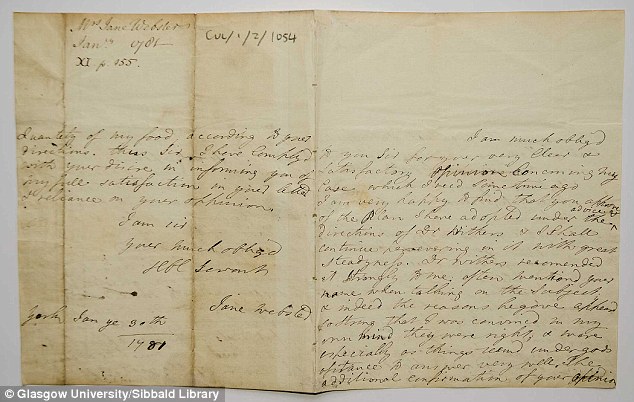 Mrs Jane Webster
Jany 1781
XI p 155.
CUL/1/2/1054
Quantity of my food according to your
directions. thus Sir I have Comply'd
with your desire in informing you of
my full satisfaction in your letter
& reliance on your opinion
I am sir
your much oblig'd
Hble Servant
Jane Webster
York Jan ye 30th
1781
I am much oblig'd
to you Sir for your very Clear &
satisfactory opinion Concerning my
Case which I recd some time ago
I am very happy to find that you approve
of the Plan I have adopted under the
directions of Dr Withers & I shall
continue persevering in it with great
steadyness. Dr Withers recomended
it strongly to me, often mention'd your
name when talking on the Subject
& indeed the reasons he gave
so strong that I was convinced in my
own mind they were right, & more
especially as things seem'd under gods
assistance to answer very well. The
additional confirmation of your opinion
© Glasgow University/Sibbald Library